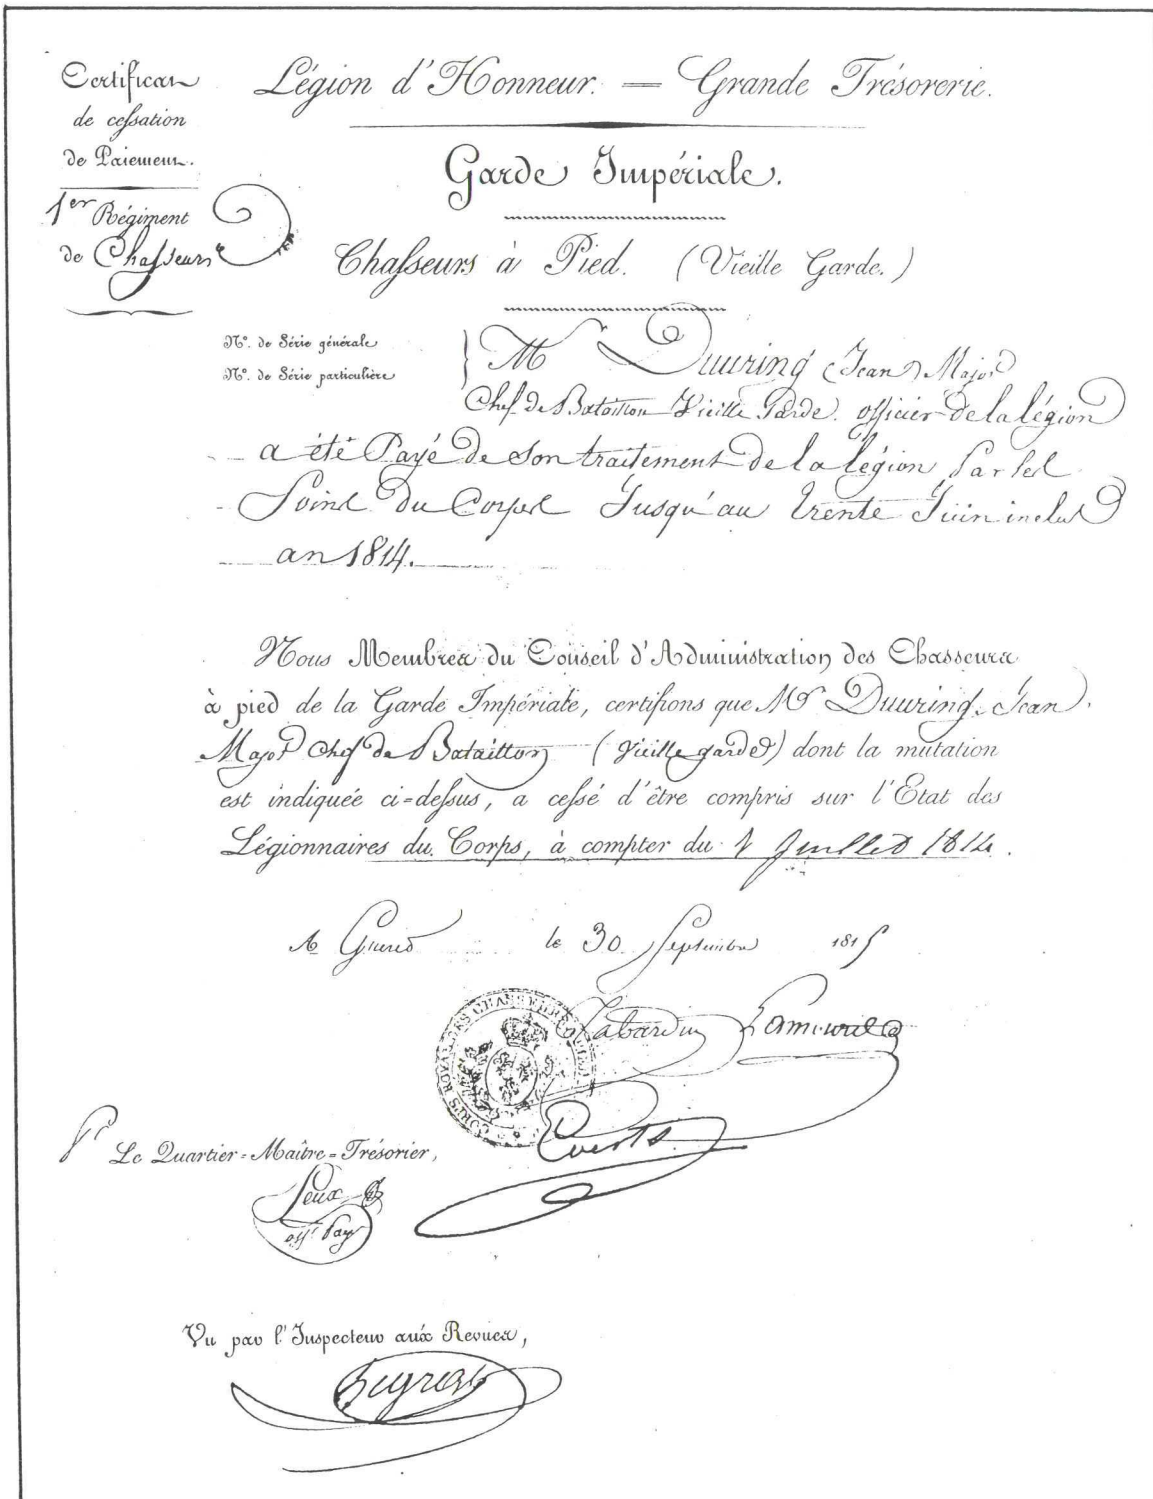 Certificat
de cessation
de Paiement.
1er Régiment
de Chasseurs
Légion d'Honneur. = Grande Trésorerie.
Garde Impériale.
Chasseurs à Pied. (Vieille Garde.)
No. de Série générale
No. de Série particulière
Mr Duuring (Jean) Major
Chef de Bataillon Vieille Garde. officier de la légion
a été Payé de son traitement de la légion Par les
Soins du Corps Jusqu'au trente Juin inclus
an 1814.
Nous Membres du Conseil d'Administration des Chasseurs
à pied de la Garde Impériale, certifions que Mr Duuring, Jean.
Major Chef de Bataillon (Vieille garde) dont la mutation
est indiquée ci-dessus, a cessé d'être compris sur l'Etat des
Légionnaires du Corps, à compter du 1 Juillet 1814.
A le 30 Septembre 1815
CORPS ROYAL DES CHASSEURS
Pr Le Quartier-Maître-Trésorier,
offr Pay
Vu par l'Inspecteur aux Revues,